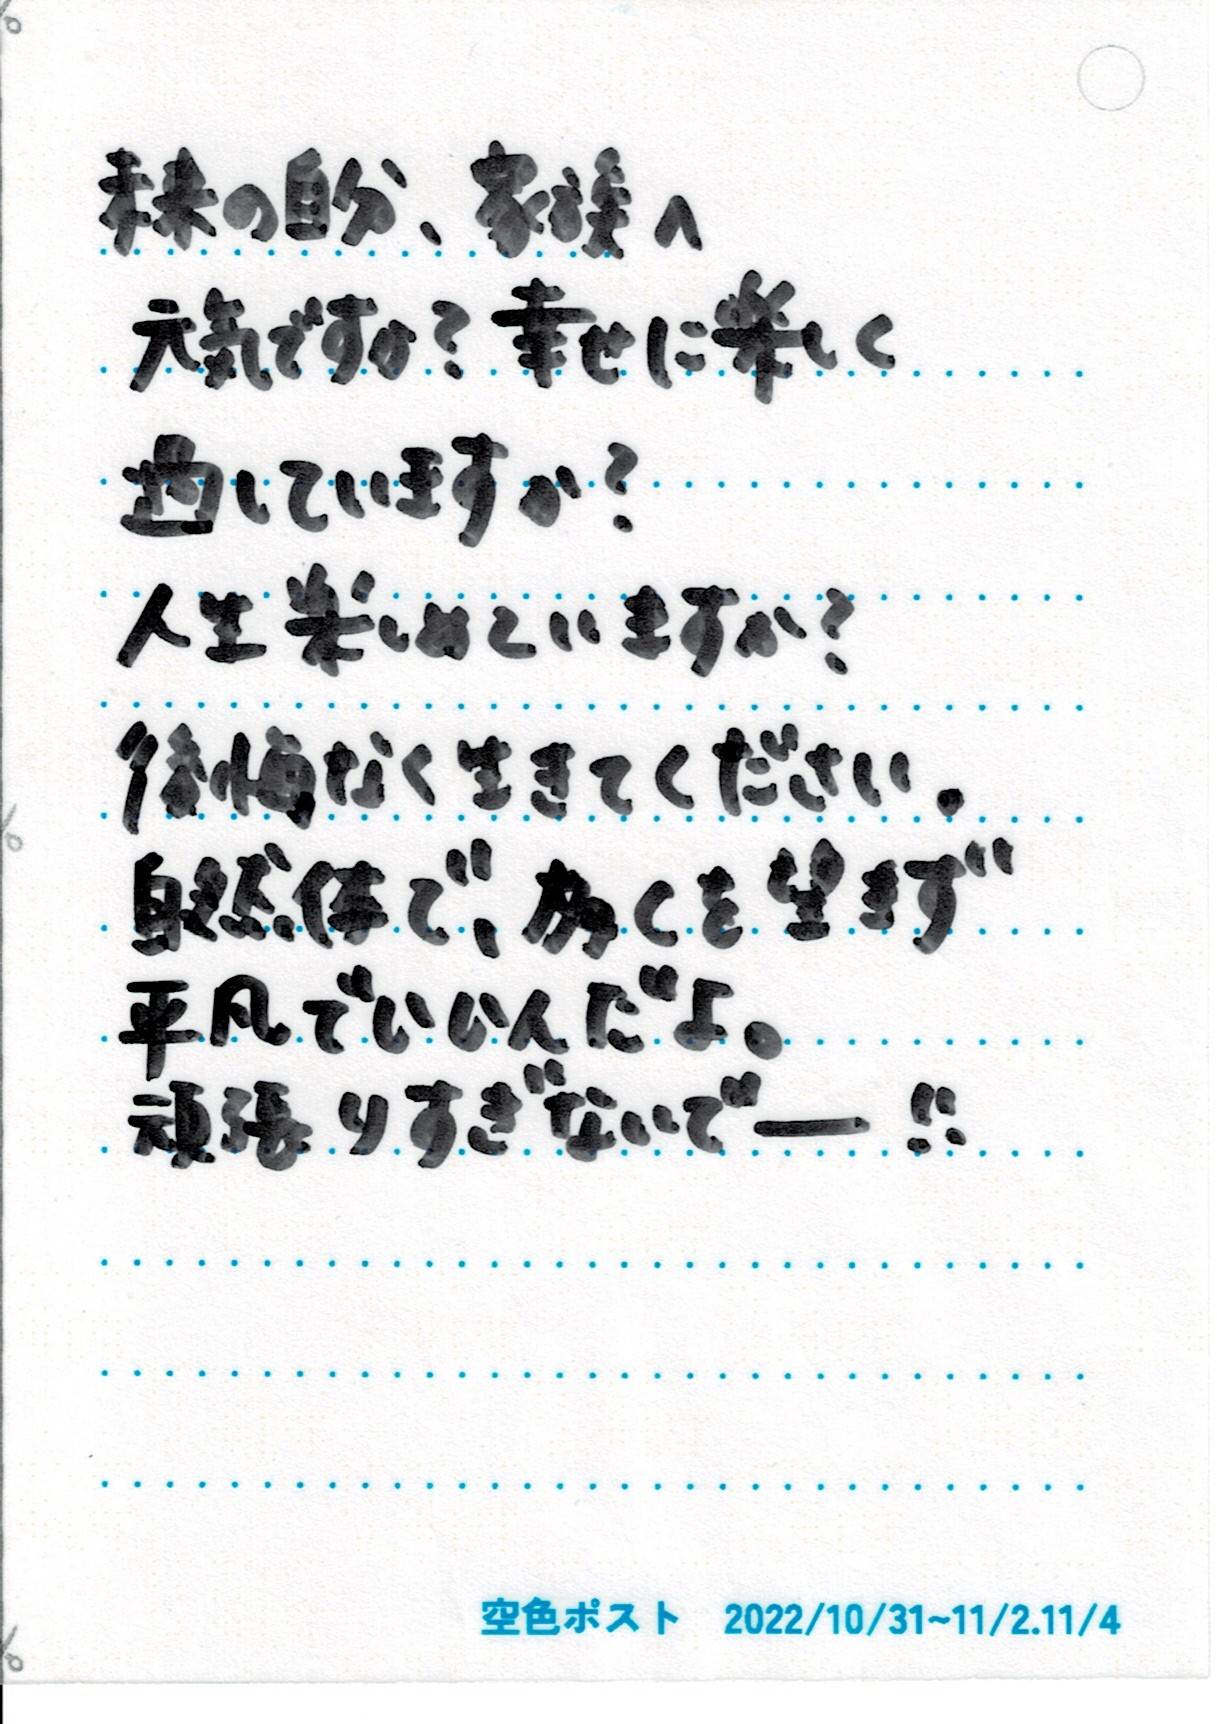 未来の自分、家族へ
元気ですか？幸せに楽しく
過していますか？
人生楽しめていますか？
後悔なく生きてください。
自然体で、多くを望まず
平凡でいいんだよ。
頑張りすぎないでー!!
空色ポスト 2022/10/31~11/2.11/4